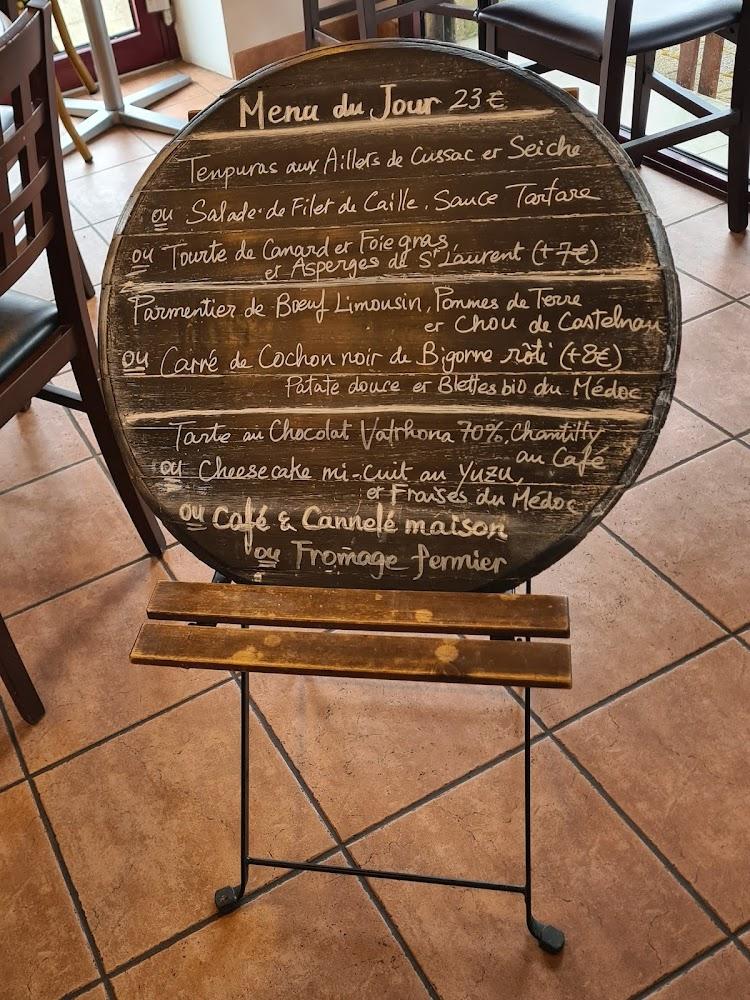 Menu du Jour 23€
Tempuras aux Aillets de Cussac et Seiche
ou Salade de Filet de Caille, Sauce Tartare
ou Tourte de Canard et Foie gras,
et Asperges de St Laurent (+7€)
Parmentier de Bœuf Limousin, Pommes de Terre
et Chou de Castelnau
ou Carré de Cochon noir de Bigorre rôti (+8€)
Patate douce et Blettes bio du Médoc
Tarte au Chocolat Valrhona 70%, Chantilly
au Café
ou Cheesecake mi-cuit au Yuzu,
et Fraises du Médoc
ou Café & Cannelé maison
ou Fromage fermier